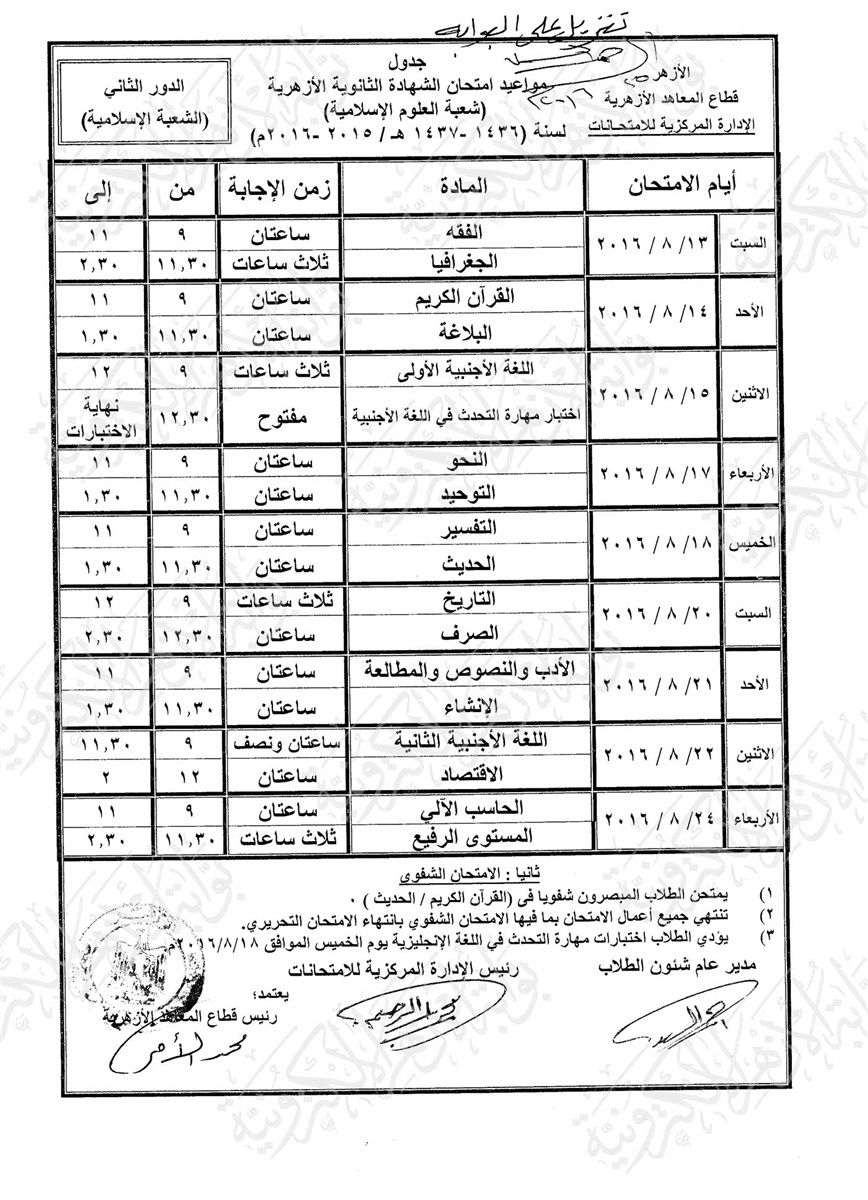 تنزيل على البوابه
الأزهر
قطاع المعاهد الأزهرية
الإدارة المركزية للامتحانات
جدول
مواعيد امتحان الشهادة الثانوية الأزهرية
(شعبة العلوم الإسلامية)
لسنة (١٤٣٦ -١٤٣٧ هـ/ ٢٠١٥ -٢٠١٦م)
الدور الثاني
(الشعبة الإسلامية)
أيام الامتحان المادة زمن الإجابة من إلى
السبت ١٣/ ٨ / ٢٠١٦ الفقه ساعتان ٩ ١١
الجغرافيا ثلاث ساعات ١١,٣٠ ٢,٣٠
الأحد ١٤/ ٨ / ٢٠١٦ القرآن الكريم ساعتان ٩ ١١
البلاغة ساعتان ١١,٣٠ ١,٣٠
الاثنين ١٥/ ٨ / ٢٠١٦ اللغة الأجنبية الأولى ثلاث ساعات ٩ ١٢
اختبار مهارة التحدث في اللغة الأجنبية مفتوح ١٢,٣٠ نهاية الاختبارات
الأربعاء ١٧/ ٨ / ٢٠١٦ النحو ساعتان ٩ ١١
التوحيد ساعتان ١١,٣٠ ١,٣٠
الخميس ١٨/ ٨ / ٢٠١٦ التفسير ساعتان ٩ ١١
الحديث ساعتان ١١,٣٠ ١,٣٠
السبت ٢٠/ ٨ / ٢٠١٦ التاريخ ثلاث ساعات ٩ ١٢
الصرف ساعتان ١٢,٣٠ ٢,٣٠
الأحد ٢١/ ٨ / ٢٠١٦ الأدب والنصوص والمطالعة ساعتان ٩ ١١
الإنشاء ساعتان ١١,٣٠ ١,٣٠
الاثنين ٢٢/ ٨ / ٢٠١٦ اللغة الأجنبية الثانية ساعتان ونصف ٩ ١١,٣٠
الاقتصاد ساعتان ١٢ ٢
الأربعاء ٢٤/ ٨ / ٢٠١٦ الحاسب الآلي ساعتان ٩ ١١
المستوى الرفيع ثلاث ساعات ١١,٣٠ ٢,٣٠
ثانيا : الامتحان الشفوى
١) يمتحن الطلاب المبصرون شفويا فى (القرآن الكريم / الحديث ) ٠
٢) تنتهي جميع أعمال الامتحان بما فيها الامتحان الشفوي بانتهاء الامتحان التحريري.
٣) يؤدي الطلاب اختبارات مهارة التحدث في اللغة الإنجليزية يوم الخميس الموافق ٢٠١٦/٨/١٨م
مدير عام شئون الطلاب
رئيس الإدارة المركزية للامتحانات
يعتمد؛
رئيس قطاع المعاهد الأزهرية